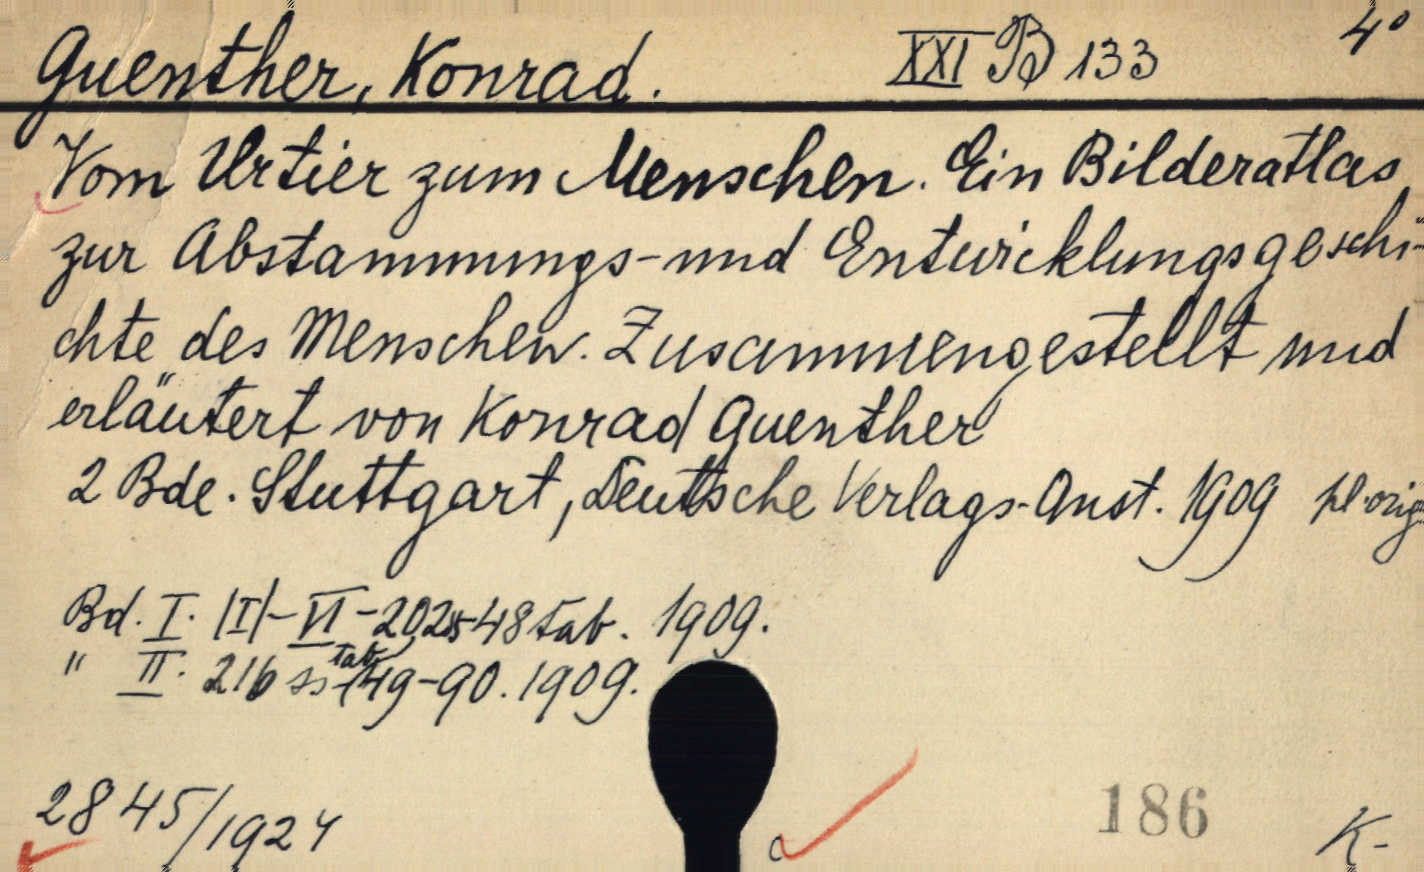 Guenther, Konrad. XXI B 133 4°
Vom Urtier zum Menschen. Ein Bilderatlas
zur Abstammungs- und Entwicklungsgeschi-
chte des Menschen. Zusammengestellt und
erläutert von Konrad Guenther
2 Bde. Stuttgart, Deutsche Verlags-Anst. 1909 pl. orig.
Bd. I. |I|-VI-202ss-48 tab. 1909.
" II. 216 ss-(tab) 49-90. 1909.
2845/1924
186 K-